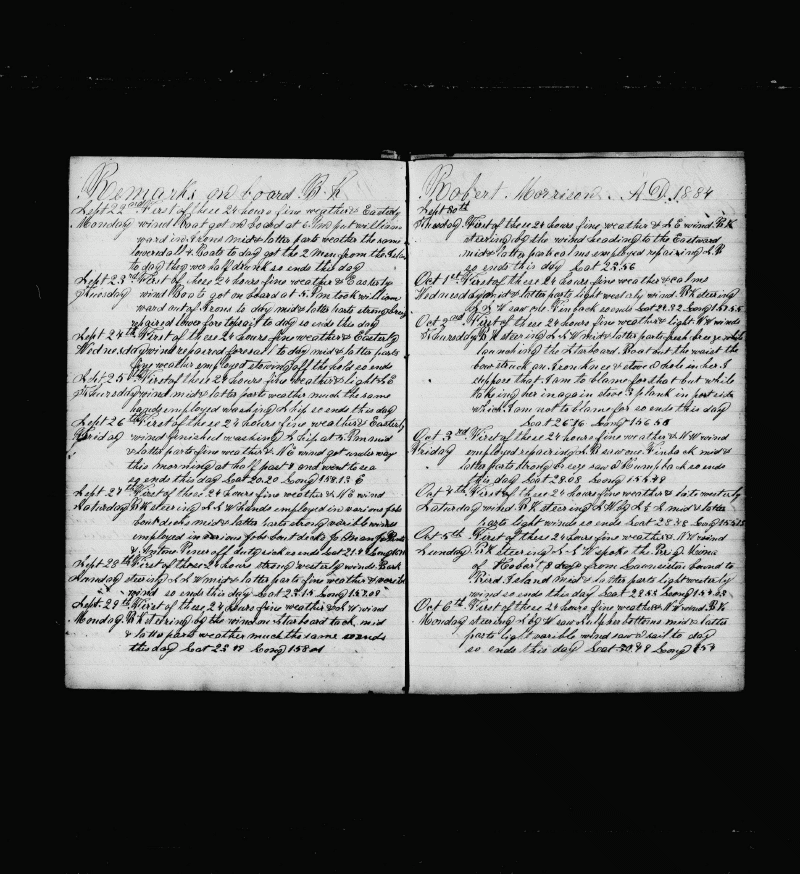 Remarks on board Bk
Sept 22nd First of these 24 hours fine weather & Easterly
Monday wind Boat got on board at 6 Pm put william
ward in Irons mid & latter parts weather the same
lowered all 4 Boats to day got the 2 men from the
to day they wer half drunk so ends this day
Sept 23rd First of these 24 hours fine weather & Easterly
Tuesday wind Boats got on board at 5 Pm took william
ward out of Irons to day mid & latter parts strong
repaired lower foretopsail to day so ends the day
Sept 24th First of these 24 hours fine weather & Easterly
Wednesday wind repaired foresail to day mid & latter parts
fine weather employed stowing off the hold so ends
Sept 25th First of these 24 hours fine weather & light SE
Thursday wind mid & latter parts weather much the same
hands employed washing Ship so ends this day
Sept 26th First of these 24 hours fine weather & Easterly
Friday wind finished washing Ship at 5 Pm mid
& latter parts fine weather & NE wind got under way
this morning at half past 8 and went to sea
so ends this day Lat 20.20 Long 158.13 E
Sept 27th First of these 24 hours fine weather & NE wind
Saturday Bk steering SSW hands employed in varions jobs
bout decks mid & latter parts strong varible winds
employed in varions jobs bout decks
& Antone Peres off duty sick so ends Lat 21.4 Long
Sept 28th First of these 24 hours strong westerly winds Bark
Sunday steering SSW mid & latter parts fine weather & varible
wind so ends this day Lat 23.15 Long 157.08
Sept 29th First of these 24 hours fine weather & SW wind
Monday Bk steering by the wind on Starboard tack mid
& latter parts weather much the same so ends
this day Lat 23 Long 158
Robert Morrison AD. 1884
Sept 30th
Tuesday First of these 24 hours fine weather & SE wind Bk
steering by the wind heading to the Eastward
mid & latter parts calms employed repairing SB
so ends this day Lat 23.56
Oct 1st First of these 24 hours fine weather & calms
Wednesday mid & latter parts light westerly wind Bk steering
by W saw one Finback so ends Lat 24.32 Long
Oct 2nd First of these 24 hours fine weather & light NW winds
Thursday Bk steering mid & latter parts fresh breeze while
launching the Starboard Boat out the waist the
bow struck an Iron knee & stove a hole in her I
suppose that I am to blame for that but while
taking her in again stove I plank in port side
which I am not to blame for so ends this day
Lat 26 Long 156
Oct 3rd First of these 24 hours fine weather & NW wind
Friday employed repairing SB saw one Finback mid &
latter parts strong breeze saw a Humpback so ends
this day Lat 28.08 Long
Oct 4th First of these 24 hours fine weather & late westerly
Saturday wind Bk steering mid & latter
parts light winds so ends Lat Long
Oct 5th First of these 24 hours fine weather & NW wind
Sunday Bk steering S.S.W spoke the Brig
of Hobart 8 days from Launceston bound to
Bird Island mid & latter parts light westerly
wind so ends this day Lat Long
Oct 6th First of these 24 hours fine weather & NW wind Bk
Monday steering S by W saw Sulpherbottoms mid & latter
parts light varible wind saw a sail to day
so ends this day Lat 30 Long